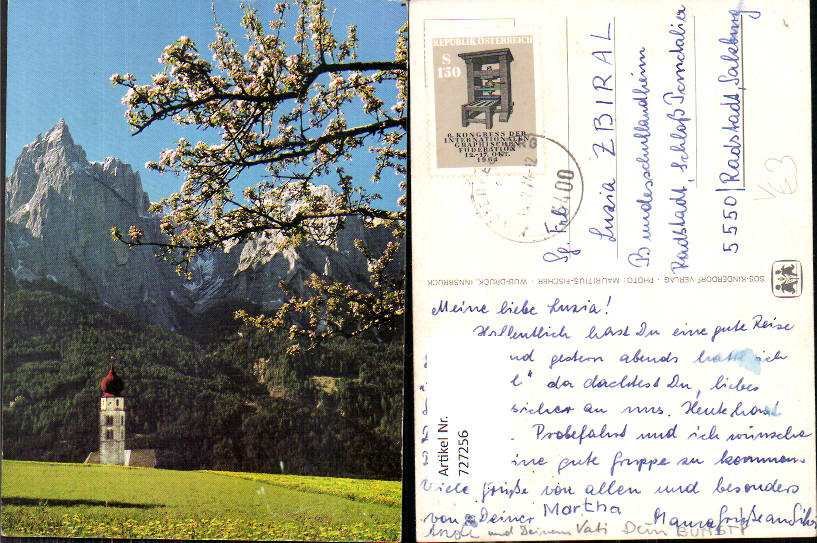 REPUBLIK ÖSTERREICH
S 1'50
6. KONGRESS DER
INTERNATIONALEN
GRAPHISCHEN
FÖDERATION
12.-17. OKT.
1964
5400
Luzia ZBIRAL
Bundesschullandheim
Radstadt, Schloß Tandalier
5550 / Radstadt, Salzburg
V E3
SOS-KINDERDORF-VERLAG · PHOTO: MAURITIUS-FISCHER · WUB-DRUCK, INNSBRUCK
Meine liebe Luzia!
Hoffentlich hast Du eine gute Reise
nd gestern abends hatte ich
l" da dachtest Du, liebes
sicher an uns. Heute hast
. Probefahrt und ich wünsche
ine gute Gruppe zu kommen.
Viele Grüße von allen und besonders
von Deiner Martha Mama Grüße an Silvi
und Deinem Vati Dein
Artikel Nr.
727256